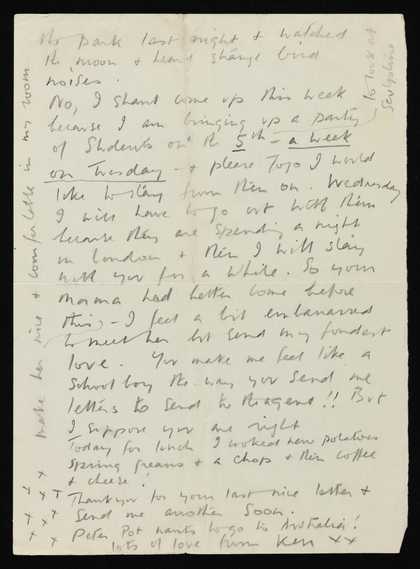 the park last night & watched
the moon & heard strange bird
noises.
No, I shant come up this week
because I am bringing up a party
of Students on the 5th - a week
on Tuesday - & please Jojo I would
like to stay from then on. Wednesday
I will have to go out with them
because they are spending a night
in London & then I will stay
with you for a while. So your
mama had better come before
this, - I feel a bit embarrassed
to meet her but send my fondest
love. You make me feel like a
School boy the way you send me
letters to send to the agent!! But
I suppose you are right
Today for lunch I cooked new potatoes
Spring greens & a chop & then coffee
& cheese!
Thank you for your last nice letter &
Send me another Soon.
Peter Pot wants to go to Australia!
lots of love from Ken x x
x x x x x x x x x
to look at
Sculpture
make her nice & comfortable in my room